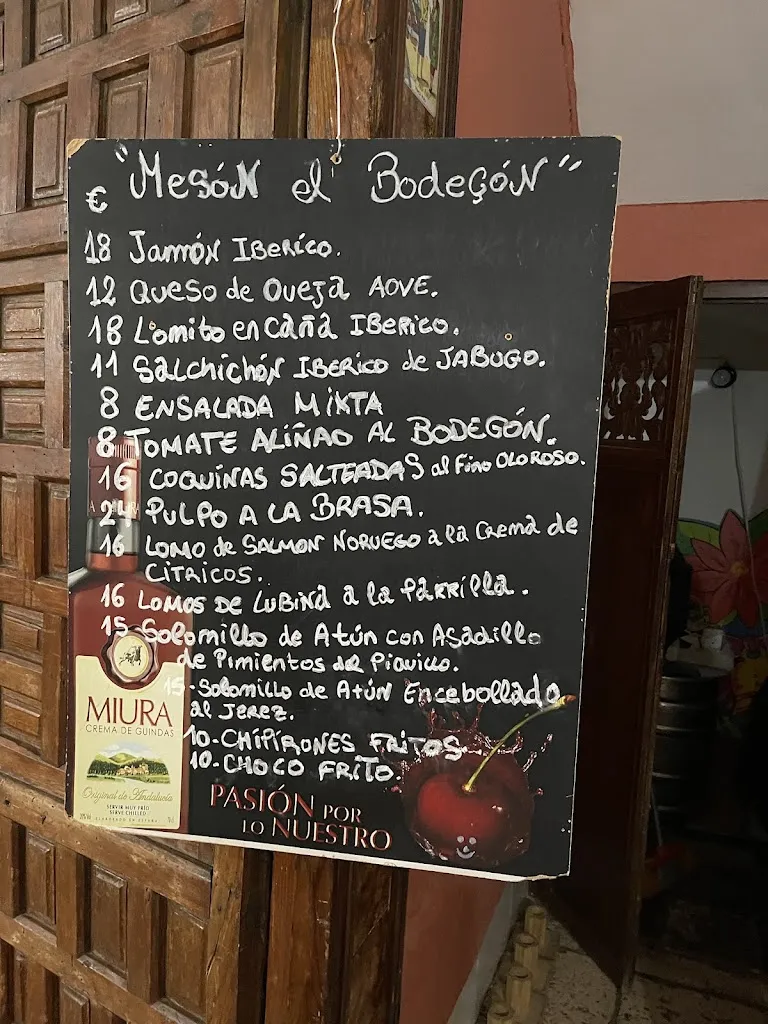 "Mesón el Bodegón"
€
18 Jamón IBerico.
12 Queso de Oveja AOVE.
18 Lomito en caña IBerico.
11 Salchichón IBerico de JABUGO.
8 ENSALADA MiXTA
8 TOMATE ALIÑAO AL BODEGÓN.
16 COQUINAS SALTEADAS al Fino OLOROSO.
24 PULPO A LA BRASA.
16 LOMO de SALMON NORUEGO a la Crema de
CITRICOS.
16 LOMOS DE LUBINA a la PARRILLA.
15 Solomillo de Atún con Asadillo
de Pimientos del Piquillo.
15-Solomillo de Atún Encebollado
al JEREZ.
10-CHIPIRONES FRITOS
10-CHOCO FRITO.
MIURA
CREMA DE GUINDAS
Original de Andalucía
SERVIR MUY FRÍO
SERVE CHILLED
PASIÓN POR
LO NUESTRO